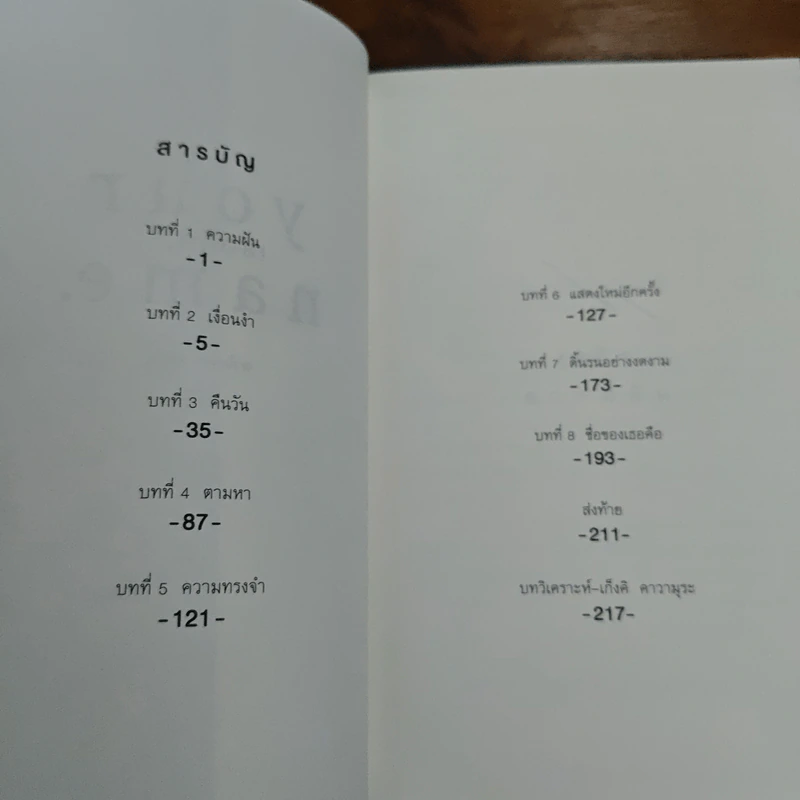 สารบัญ
บทที่ 1 ความฝัน
-1-
บทที่ 2 เงื่อนงำ
-5-
บทที่ 3 คืนวัน
-35-
บทที่ 4 ตามหา
-87-
บทที่ 5 ความทรงจำ
-121-
บทที่ 6 แสดงใหม่อีกครั้ง
-127-
บทที่ 7 ดิ้นรนอย่างงดงาม
-173-
บทที่ 8 ชื่อของเธอคือ
-193-
ส่งท้าย
-211-
บทวิเคราะห์-เก็งคิ คาวามุระ
-217-
your
name.